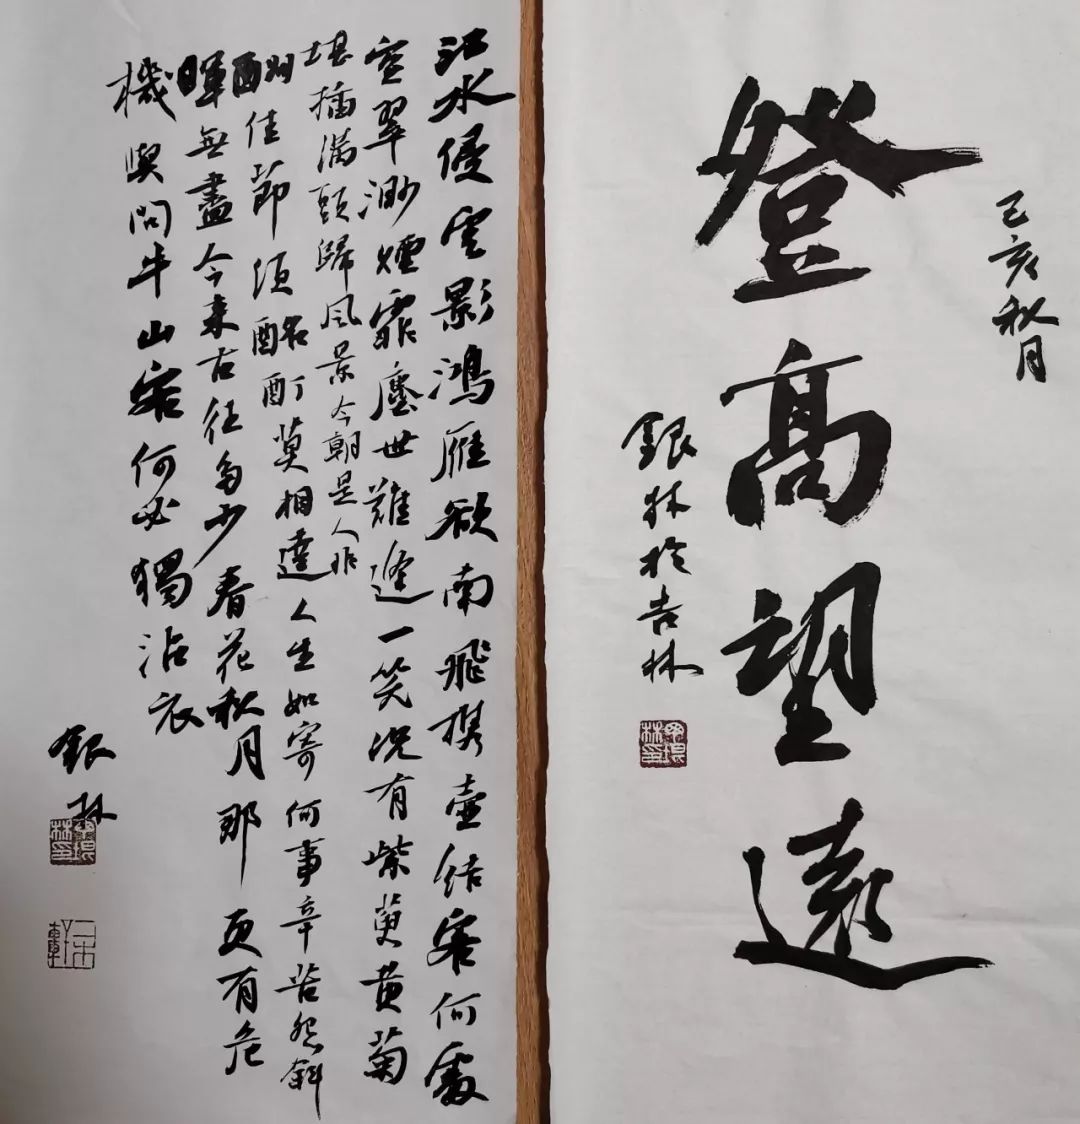 己亥秋月
登高望遠
銀林於吉林
江水侵雲影鴻雁欲南飛携壺結客何處
空翠渺煙霏塵世難逢一笑況有紫萸黄菊
堪插滿頭歸風景今朝是人非
酬佳節須酩酊莫相違人生如寄何事辛苦怨斜
暉無盡今來古往多少春花秋月那更有危
機與問牛山客何必獨沾衣
銀林